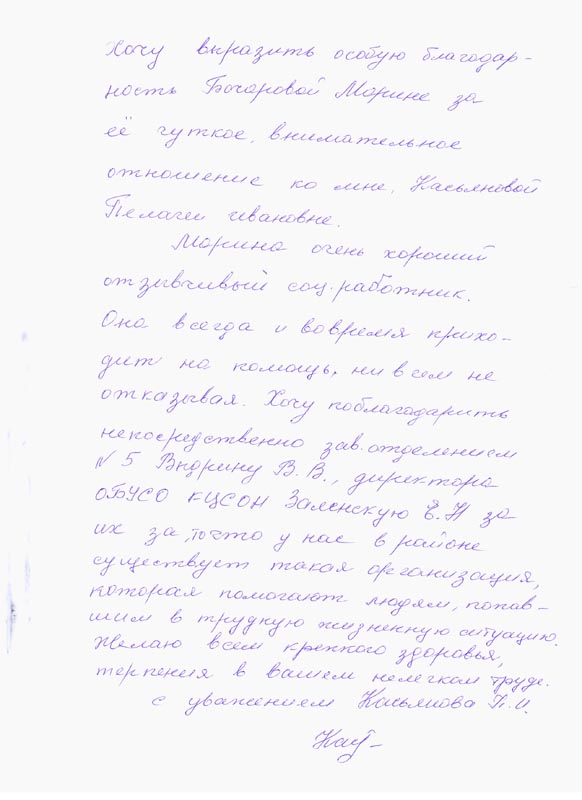 Хочу выразить особую благодар-
ность Бочаровой Марине за
её чуткое, внимательное
отношение ко мне, Касьяновой
Пелагеи ивановне.
Марина очень хороший
отзывчивый соц.работник.
Она всегда и вовремя прихо-
дит на помощь, ни в чем не
отказывая. Хочу поблагодарить
непосредственно зав.отделением
N 5 Выдрину В.В., директора
ОБУСО КЦСОН Заленскую Е.Н за
их за, то что у нас в районе
существует такая организация,
которая помогают людям, попав-
шим в трудную жизненную ситуацию.
Желаю всем крепкого здоровья,
терпения в вашем нелегком труде.
с уважением Касьянова П.И.